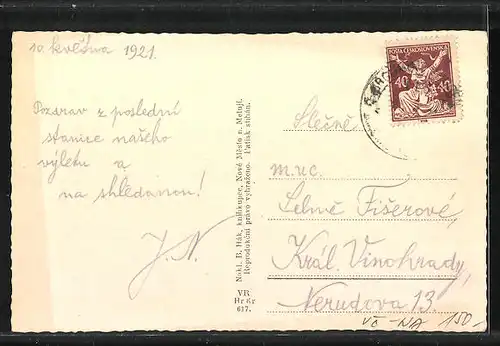 10. května 1921.
Pozdrav z poslední
stanice našeho
výletu a
na shledanou!
J. N.
Nákl. B. Hák, knihkupec, Nové Město n. Metují.
Reprodukční právo vyhraženo. Patisk stíhán.
VR
Hr Kr
617.
POŠTA ČESKOSLOVENSKÁ
40 40
Slečně
m.u.c.
Fišerové,
Král. Vinohrady,
Nerudova 13.
VČ-NA 150,-